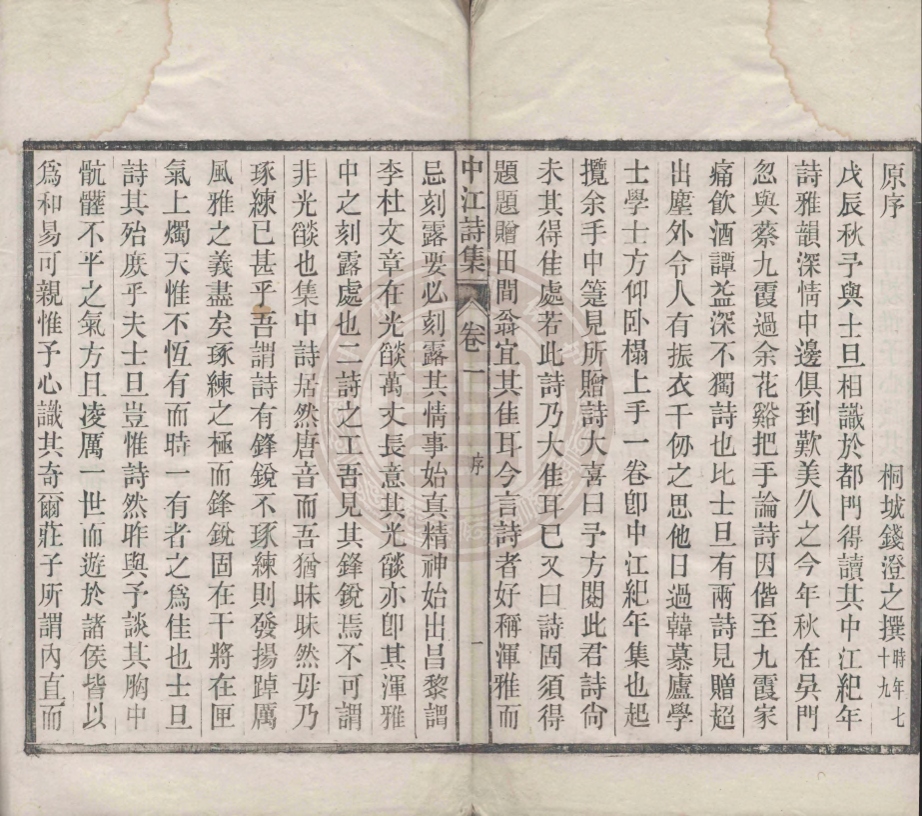 原序
桐城錢澄之撰時年七十九
戊辰秋予與士旦相識於都門得讀其中江紀年
詩雅韻深情中邊俱到歎美久之今年秋在吳門
忽與蔡九霞過余花谿把手論詩因偕至九霞家
痛飲酒譚益深不獨詩也比士旦有兩詩見贈超
出塵外令人有振衣千仞之思他日過韓慕廬學
士學士方仰卧榻上手一卷卽中江紀年集也起
攬余手中箑見所贈詩大喜曰予方閱此君詩尙
未其得佳處若此詩乃大佳耳已又曰詩固須得
題題贈田間翁宜其佳耳今言詩者好稱渾雅而
中江詩集
卷一
序
一
忌刻露要必刻露其情事始真精神始出昌黎謂
李杜文章在光燄萬丈長意其光燄亦卽其渾雅
中之刻露處也二詩之工吾見其鋒銳焉不可謂
非光燄也集中詩居然唐音而吾猶昧昧然毋乃
琢練已甚乎吾謂詩有鋒銳不琢練則發揚踔厲
風雅之義盡矣琢練之極而鋒銳固在干將在匣
氣上燭天惟不恆有而時一有者之爲佳也士旦
詩其殆庶乎夫士旦豈惟詩然昨與予談其胸中
骯髒不平之氣方且凌厲一世而遊於諸侯皆以
爲和易可親惟予心識其奇爾莊子所謂內直而